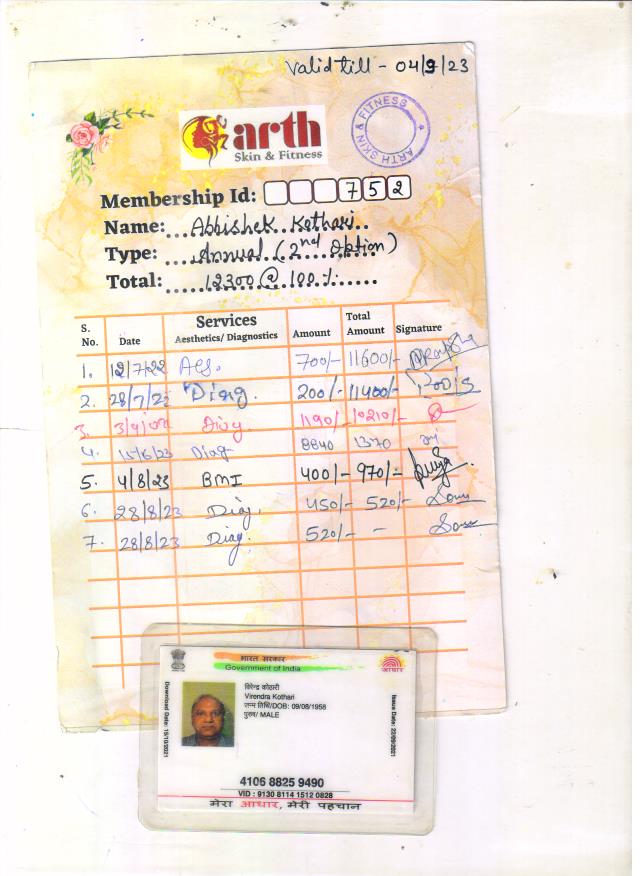 Valid till - 04/9/23
ARTH SKIN & FITNESS
arth
Skin & Fitness
Membership Id: 752
Name: Abhishek Kothari
Type: Annual (2nd Option)
Total: 12300 @ 100%
S. No. Date Services Aesthetics/ Diagnostics Amount Total Amount Signature
1. 12/7/22 Aes. 700/- 11600/-
2. 28/7/22 Diag. 200/- 11400/-
3. 1190/- 10210/-
4. 15/6/23 Diag 8840 1370
5. 4/8/23 BMI 400/- 970/- Puja
6. 28/8/23 Diag. 450/- 520/-
7. 28/8/23 Diag. 520/- -
भारत सरकार
Government of India
आधार
Download Date: 15/10/2021
विरेन्द्र कोठारी
Virendra Kothari
जन्म तिथि/DOB: 09/08/1958
पुरुष/ MALE
Issue Date: 22/09/2021
4106 8825 9490
VID : 9130 8114 1512 0828
मेरा आधार, मेरी पहचान